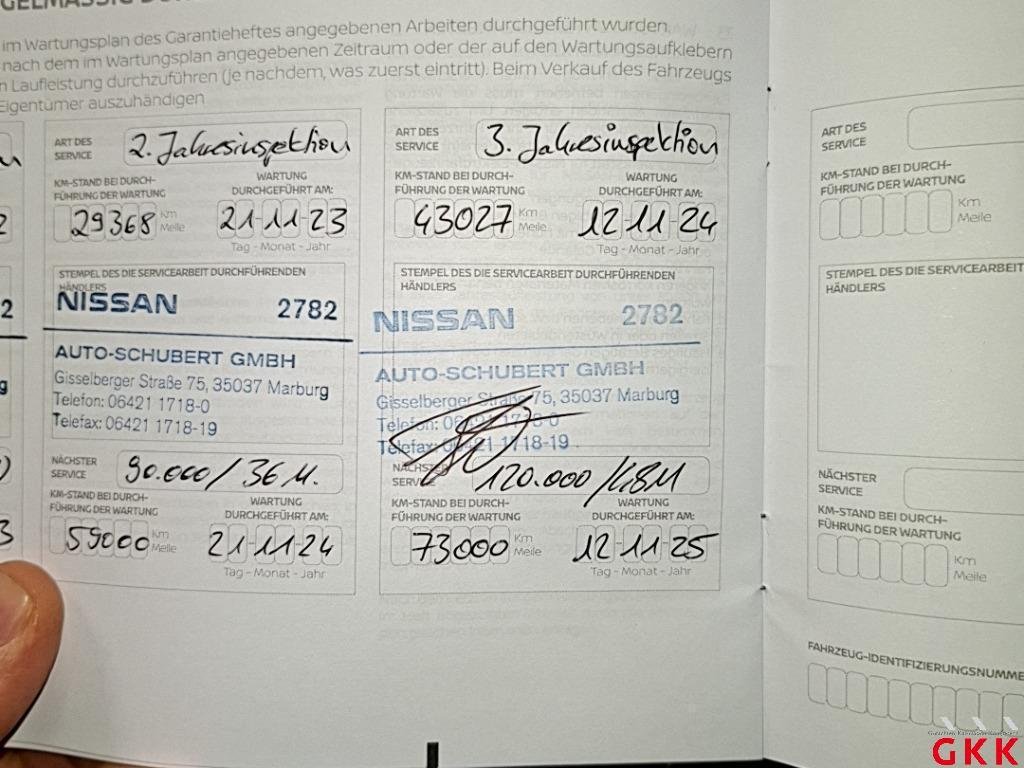 im Wartungsplan des Garantieheftes angegebenen Arbeiten durchgeführt wurden.
nach dem im Wartungsplan angegebenen Zeitraum oder der auf den Wartungsaufklebern
Laufleistung durchzuführen (je nachdem, was zuerst eintritt). Beim Verkauf des Fahrzeugs
Eigentümer auszuhändigen
ART DES
SERVICE
2. Jahresinspektion
KM-STAND BEI DURCH-
FÜHRUNG DER WARTUNG
WARTUNG
DURCHGEFÜHRT AM:
29368 Km
Meile
21-11-23
Tag - Monat - Jahr
STEMPEL DES DIE SERVICEARBEIT DURCHFÜHRENDEN
HÄNDLERS
NISSAN 2782
AUTO-SCHUBERT GMBH
Gisselberger Straße 75, 35037 Marburg
Telefon: 06421 1718-0
Telefax: 06421 1718-19
NÄCHSTER
SERVICE
90.000/36 M.
KM-STAND BEI DURCH-
FÜHRUNG DER WARTUNG
WARTUNG
DURCHGEFÜHRT AM:
59000 Km
Meile
21-11-24
Tag - Monat - Jahr
ART DES
SERVICE
3. Jahresinspektion
KM-STAND BEI DURCH-
FÜHRUNG DER WARTUNG
WARTUNG
DURCHGEFÜHRT AM:
43027 Km
Meile
12-11-24
Tag - Monat - Jahr
STEMPEL DES DIE SERVICEARBEIT DURCHFÜHRENDEN
HÄNDLERS
NISSAN 2782
AUTO-SCHUBERT GMBH
Gisselberger Straße 75, 35037 Marburg
Telefon: 06421 1718-0
Telefax: 06421 1718-19
NÄCHSTER
SERVICE
120.000/48M
KM-STAND BEI DURCH-
FÜHRUNG DER WARTUNG
WARTUNG
DURCHGEFÜHRT AM:
73000 Km
Meile
12-11-25
Tag - Monat - Jahr
ART DES
SERVICE
KM-STAND BEI DURCH-
FÜHRUNG DER WARTUNG
Km
Meile
STEMPEL DES DIE SERVICEARBEIT
HÄNDLERS
NÄCHSTER
SERVICE
KM-STAND BEI DURCH-
FÜHRUNG DER WARTUNG
Km
Meile
FAHRZEUG-IDENTIFIZIERUNGSNUMME
GKK